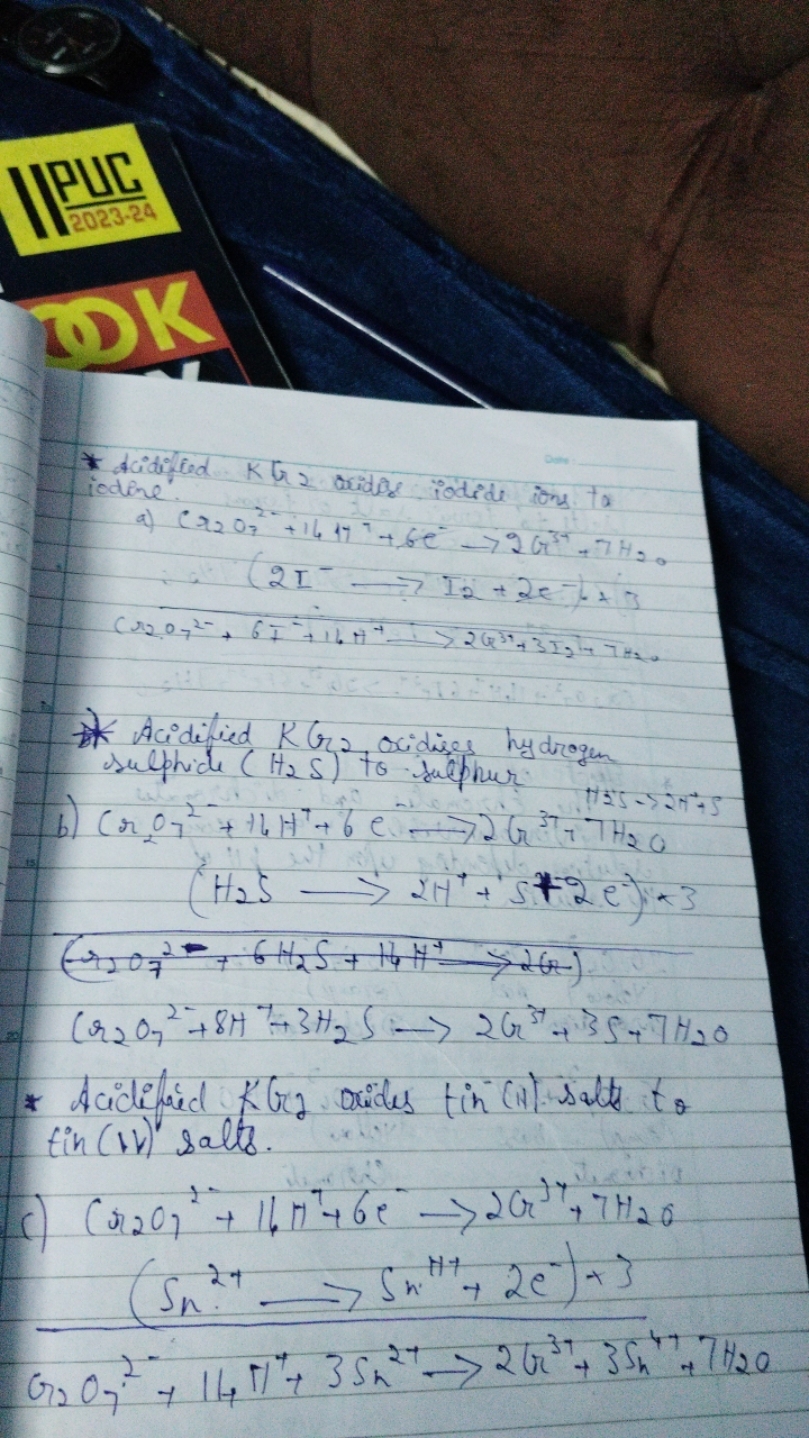 II PUC
2023-24
OOK
Date:
* Acidified KCr2 oxides iodide ions to
iodine.
a) Cr2O7²⁻ + 14H⁺ + 6e⁻ → 2Cr³⁺ + 7H2O
(2I⁻ → I2 + 2e⁻) × 3
Cr2O7²⁻ + 6I⁻ + 14H⁺ → 2Cr³⁺ + 3I2 + 7H2O
* Acidified KCr2 oxidises hydrogen
sulphide (H2S) to sulphur
H2S → 2H⁺ + S
b) Cr2O7²⁻ + 14H⁺ + 6e → 2Cr³⁺ + 7H2O
(H2S → 2H⁺ + S + 2e⁻) × 3
(Cr2O7²⁻ + 6H2S + 14H⁺ → 2Cr)
Cr2O7²⁻ + 8H⁺ + 3H2S → 2Cr³⁺ + 3S + 7H2O
* Acidifaied KCr2 oxides tin (II) salts to
tin (IV) salts.
c) Cr2O7²⁻ + 14H⁺ + 6e⁻ → 2Cr³⁺ + 7H2O
(Sn²⁺ → Sn⁴⁺ + 2e⁻) × 3
Cr2O7²⁻ + 14H⁺ + 3Sn²⁺ → 2Cr³⁺ + 3Sn⁴⁺ + 7H2O